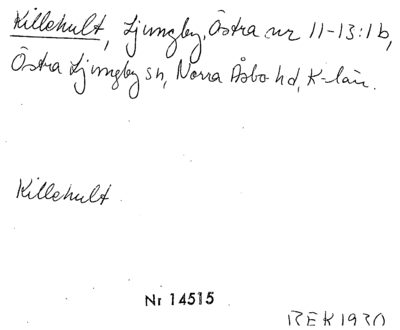 Killehult, Ljungby, Östra nr 11-13:1b,
Östra Ljungby sn, Norra Åsbo hd, K-län.
Killehult
Nr 14515
REK 1930